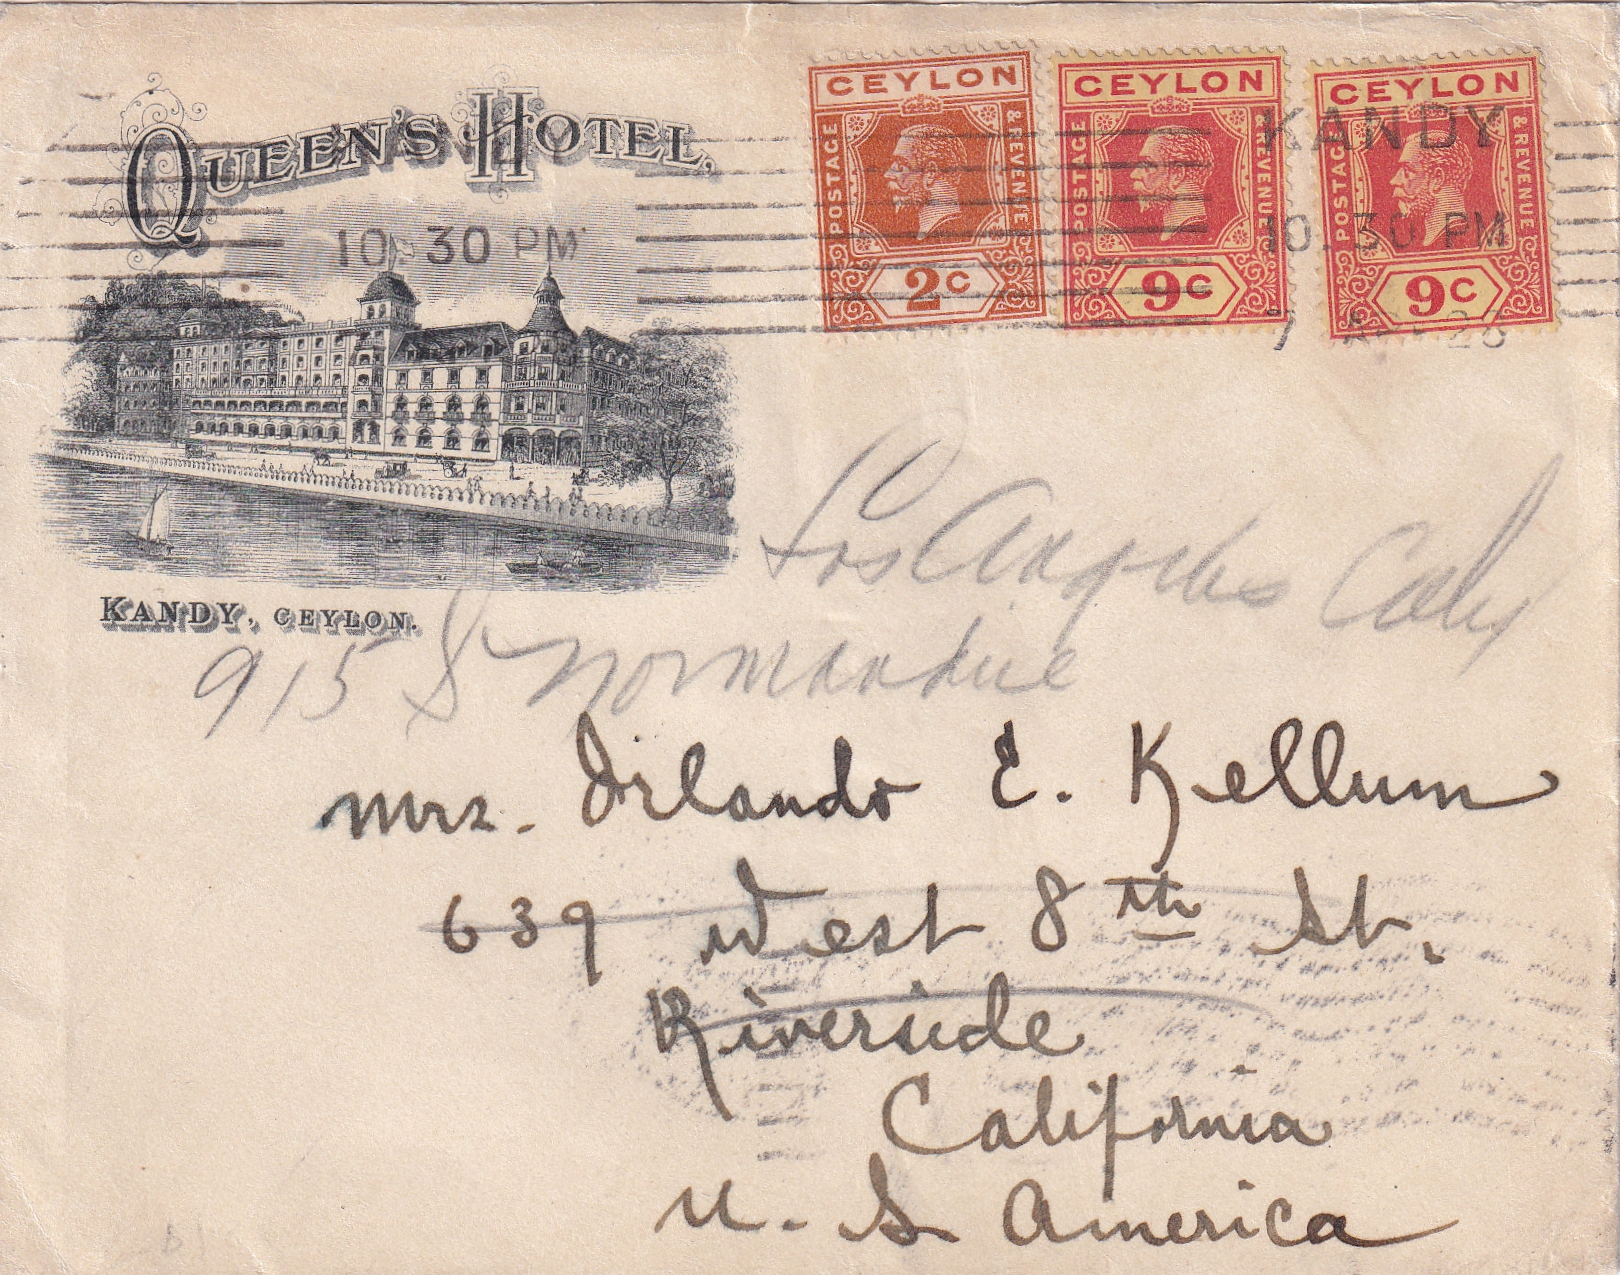 QUEEN'S HOTEL.
KANDY, CEYLON.
10. 30 PM
CEYLON
POSTAGE & REVENUE
2 C
CEYLON
POSTAGE & REVENUE
9 C
CEYLON
POSTAGE & REVENUE
9 C
KANDY
10. 30 PM
Los Angeles Calif
915 S Normandie
Mrs. Orlando E. Kellum
639 West 8th St.
Riverside
California
U. S. America